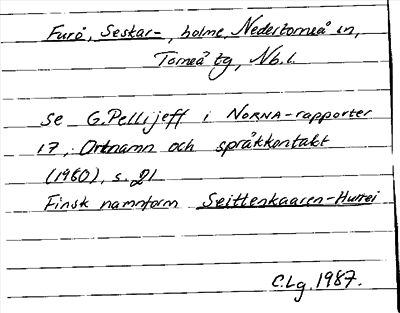 Furö, Seskar-, holme, Nedertorneå sn,
Torneå tg, Nb.l.
Se G. Pellijeff i NORNA-rapporter
17, Ortnamn och språkkontakt
(1980), s. 21
Finsk namnform Seittenkaaren-Hurrei
C.Lg. 1987.